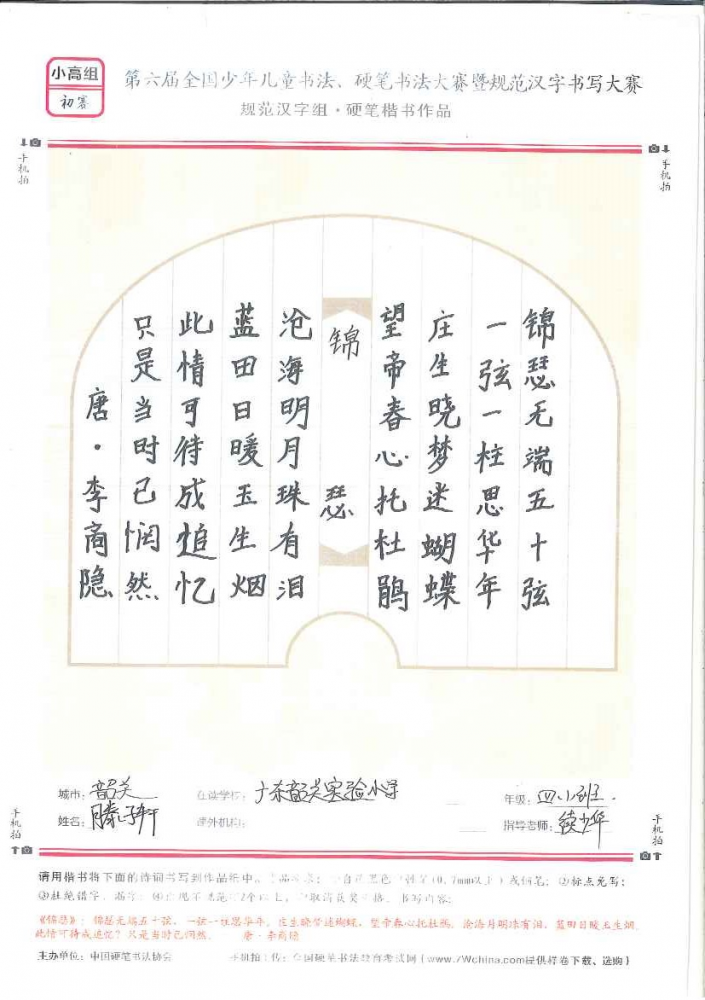 小高组
初赛
第六届全国少年儿童书法、硬笔书法大赛暨规范汉字书写大赛
规范汉字组·硬笔楷书作品
手机拍
手机拍
锦瑟无端五十弦
一弦一柱思华年
庄生晓梦迷蝴蝶
望帝春心托杜鹃
锦瑟
沧海明月珠有泪
蓝田日暖玉生烟
此情可待成追忆
只是当时已惘然
唐·李商隐
城市：韶关
在读学校：广东韶关实验小学
年级：四
姓名：
课外机构：
指导老师：
手机拍
手机拍
请用楷书将下面的诗词书写到作品纸中。
(0.7mm以上)或钢笔；②标点免写；
③杜绝错字、漏字；
书写内容：
《锦瑟》：锦瑟无端五十弦，一弦一柱思华年。庄生晓梦迷蝴蝶，望帝春心托杜鹃。沧海月明珠有泪，蓝田日暖玉生烟。
此情可待成追忆？只是当时已惘然。 唐·李商隐
主办单位：中国硬笔书法协会
手机拍上传：全国硬笔书法教育考试网（www.7Wchina.com提供样卷下载、选购）